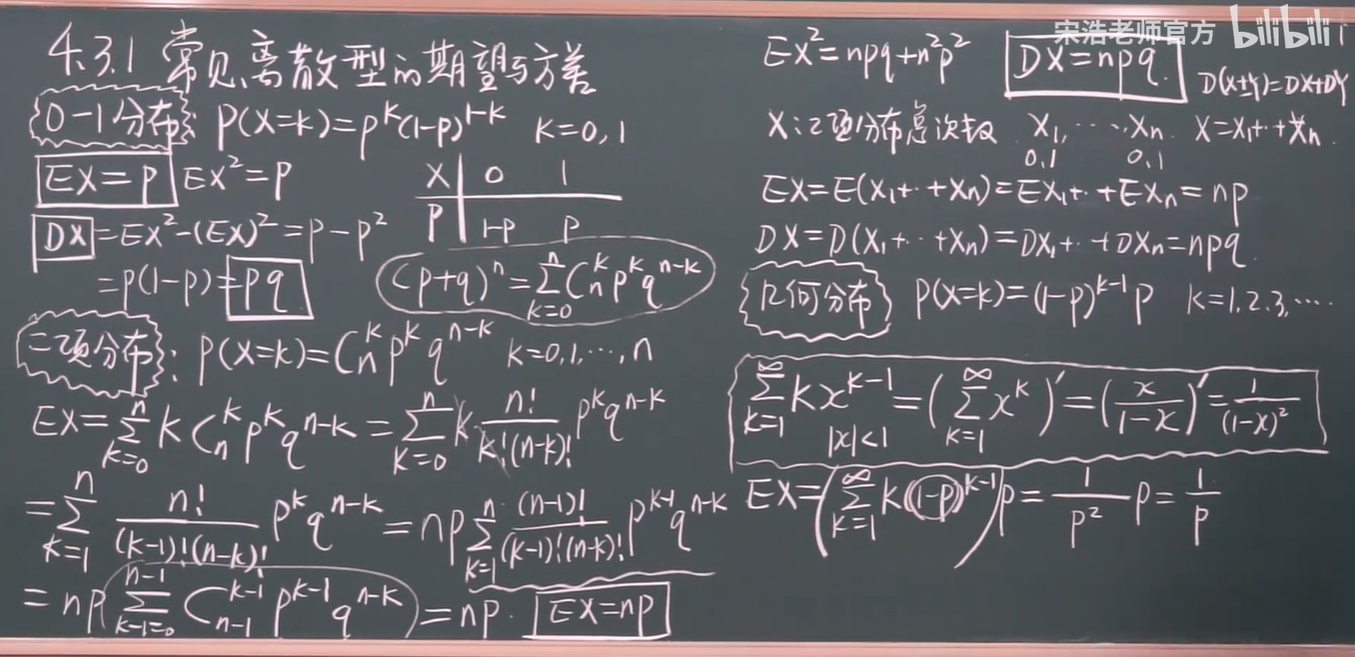 4.3.1 常见离散型的期望与方差
0-1分布: P(X=k)=p^k(1-p)^{1-k} k=0,1
EX=p EX²=p
X | 0 1
P | 1-p p
DX=EX²-(EX)²=p-p²
=p(1-p)=pq
(p+q)^n=∑_{k=0}^{n}C_n^k p^k q^{n-k}
二项分布: P(X=k)=C_n^k p^k q^{n-k} k=0,1,…,n
EX=∑_{k=0}^{n} k C_n^k p^k q^{n-k}=∑_{k=0}^{n} k \frac{n!}{k!(n-k)!} p^k q^{n-k}
=∑_{k=1}^{n} \frac{n!}{(k-1)!(n-k)!} p^k q^{n-k}=np∑_{k=1}^{n} \frac{(n-1)!}{(k-1)!(n-k)!} p^{k-1} q^{n-k}
=np∑_{k-1=0}^{n-1} C_{n-1}^{k-1} p^{k-1} q^{n-k}=np. EX=np
宋浩老师官方 bilibili
EX²=npq+n²p² DX=npq. D(X±Y)=DX+DY
X:二项分布总次数 X₁,…,Xn. X=X₁+…+Xn.
0,1 0,1
EX=E(X₁+…+Xn)=EX₁+…+EXn=np
DX=D(X₁+…+Xn)=DX₁+…+DXn=npq.
几何分布 P(X=k)=(1-p)^{k-1}p k=1,2,3,…
∑_{k=1}^{∞} k x^{k-1}=(∑_{k=1}^{∞} x^k)'=(\frac{x}{1-x})'=\frac{1}{(1-x)²}
|x|<1
EX=(∑_{k=1}^{∞} k(1-p)^{k-1})p=\frac{1}{p²}p=\frac{1}{p}